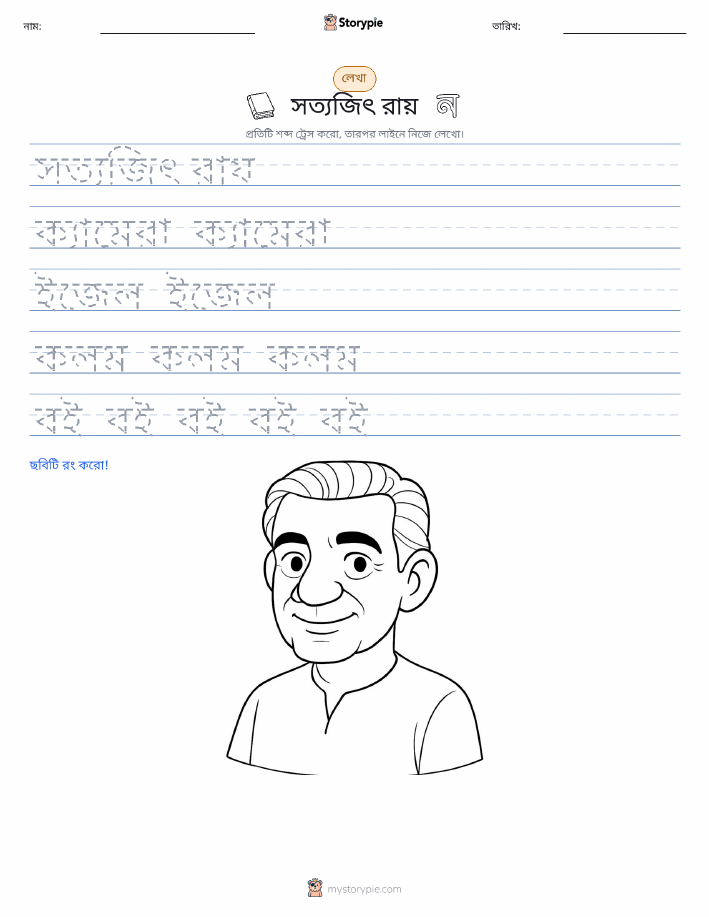 নাম:
Storypie
তারিখ:
লেখা
সত্যজিৎ রায় ন
প্রতিটি শব্দ ট্রেস করো, তারপর লাইনে নিজে লেখো।
সত্যজিৎ রায়
ক্যামেরা ক্যামেরা
ইজেল ইজেল
কলম কলম কলম
বই বই বই বই বই
ছবিটি রং করো!
mystorypie.com